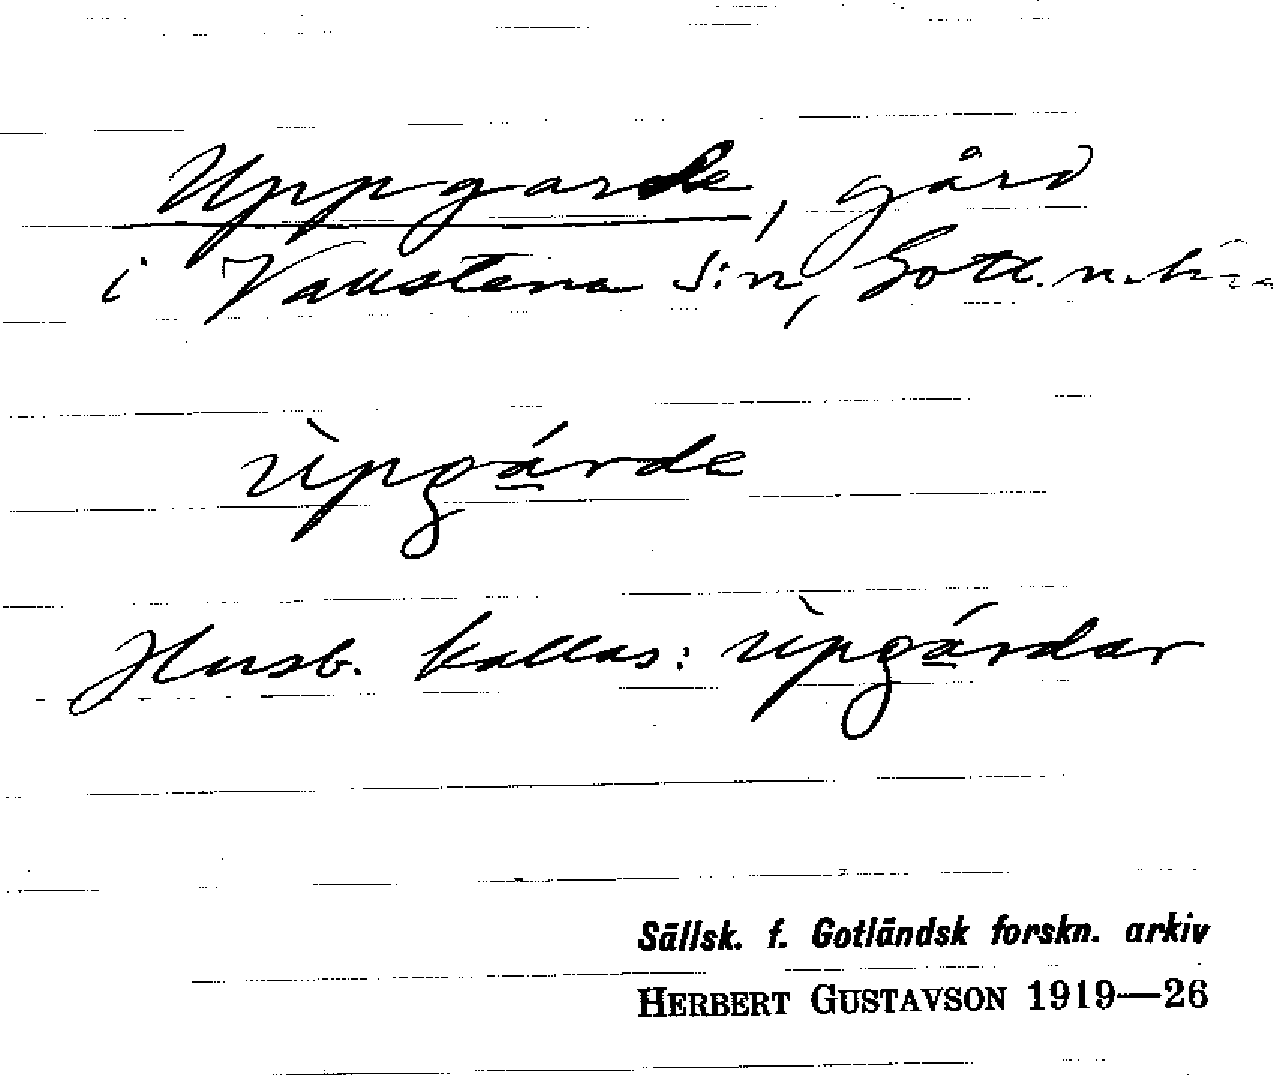 Uppgarde, gård
i Vallstena s:n, Gotl. n. hra
ùpgá̱rde
Husb. kallas: ùpgá̱rdar
Sällsk. f. Gotländsk forskn. arkiv
HERBERT GUSTAVSON 1919—26